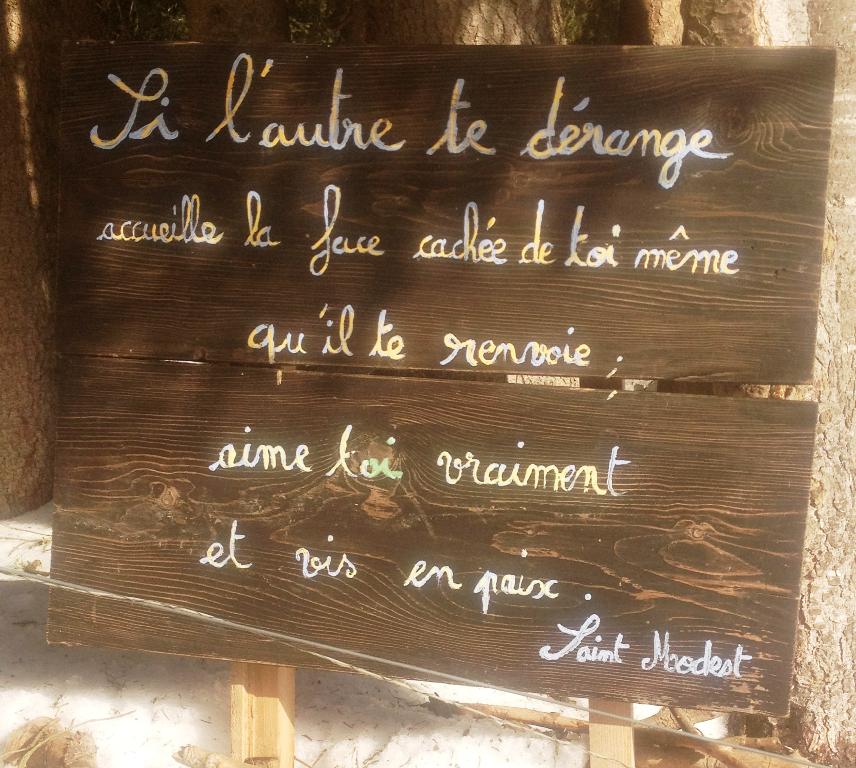 Si l'autre te dérange
accueille la face cachée de toi même
qu'il te renvoie ;
aime toi vraiment
et vis en paix .
Saint Modest